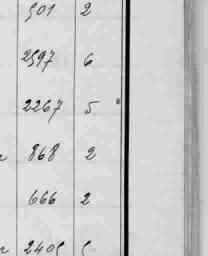 501 2
2597 6
2267 5
868 2
666 2
2405